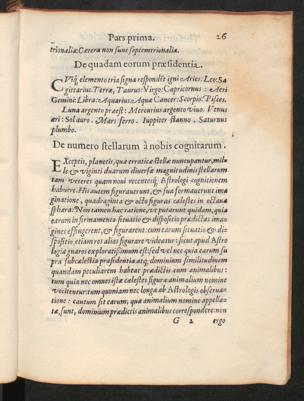 Pars prima. 26
trionalia. Cætera non sunt septemtrionalia.
De quadam eorum præsidentia.
CViq; elemento tria signa respondēt igni Aries: Leo: Sa
gittarius. Terræ, Taurus: Virgo: Capricornus: Aeri
Gemini: Libra: Aquarius. Aqua Cancer: Scorpio: Pisces,
Luna argento præest: Mercurius argento vivo. Venus
æri: Sol auro. Mars ferro. Iuppiter stanno. Saturnus
plumbo.
De numero stellarum à nobis cognitarum.
EXceptis, planetis, quæ erraticæ stellæ nuncupantur, mil
le & viginti duarum diversæ magnitudinis stellarum
tam veteres quam novi recentesq; Astrologi cognitionem
habuere. His autem figuraverunt, & sua formaverunt ima
ginatione, quadraginta & octo figuras cælestes in octava
sphæra. Non tamen hac ratione, ve putarunt quidam, quia
earum in firmamento situatio & dispositio prædictas ima
gines effingerent, & figurarent: cum earum situatio & di-
spositio etiam vel alias figurare videatur: sicut apud Astro
logiæ gnaros exploratissimum est, sed vel nec quia earum su
pra subcælestia præsidentia atq; dominium similitudinem
quandam peculiarem habeat prædictis cum animalibus:
tum quia nec omnes istæ cælestes figuræ animalium nomine
vocitentur tum quoniam nec longa ab Astrologis observa
tione: cautum sit earum, quæ animalium nomine appella-
tæ, sunt, dominium prædictis animalibus correspondere: non
G 2 ergo